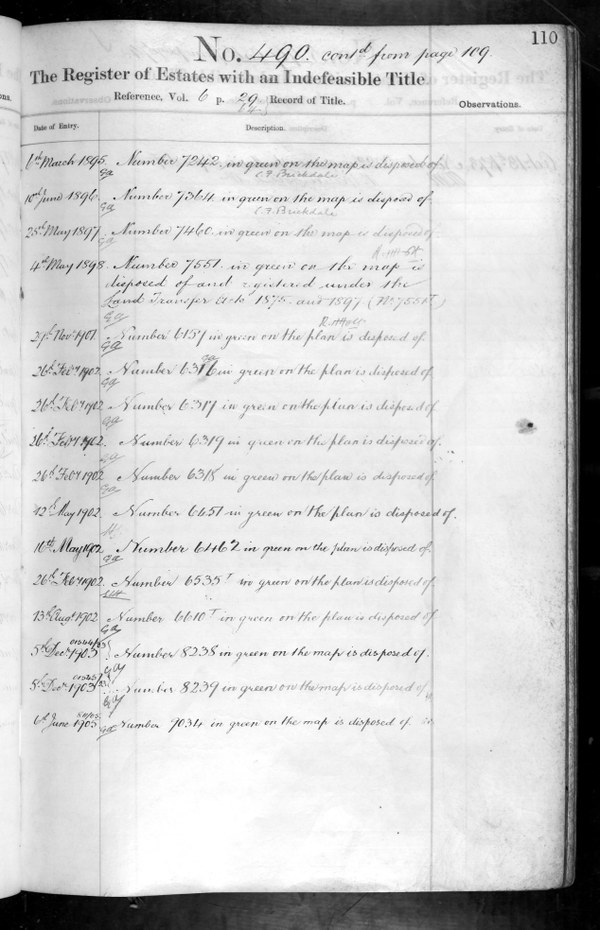 110
No. 490. contd from page 109.
The Register of Estates with an Indefeasible Title.
Reference, Vol. 6 p. 29 Record of Title.
Observations.
Date of Entry. Description.
6th March 1895. Number 7242 in green on the map is disposed of
C. F. Brickdale
10th June 1896. Number 7364 in green on the map is disposed of.
C. F. Brickdale
28th May 1897. Number 7460 in green on the map is disposed of
4th May 1898. Number 7551 in green on the map is
disposed of and registered under the
Land Transfer Acts 1875 and 1897 (No 7551
R. Holt
27th Novr 1901. Number 6157 in green on the plan is disposed of.
26th Feby 1902. Number 6316 in green on the plan is disposed of
26th Feby 1902 Number 6317 in green on the plan is disposed of
26th Feby 1902. Number 6319 in green on the plan is disposed of
26th Feby 1902 Number 6318 in green on the plan is disposed of
12th May 1902. Number 6451 in green on the plan is disposed of.
16th May 1902 Number 6462 in green on the plan is disposed of
26th Feby 1902. Number 6535T in green on the plan is disposed of
13th Augt 1902 Number 6610T in green on the plan is disposed of
5th Decr 1903 Number 8238 in green on the map is disposed of.
5th Decr 1903 Number 8239 in green on the map is disposed of
6th June 1905 Number 9034 in green on the map is disposed of